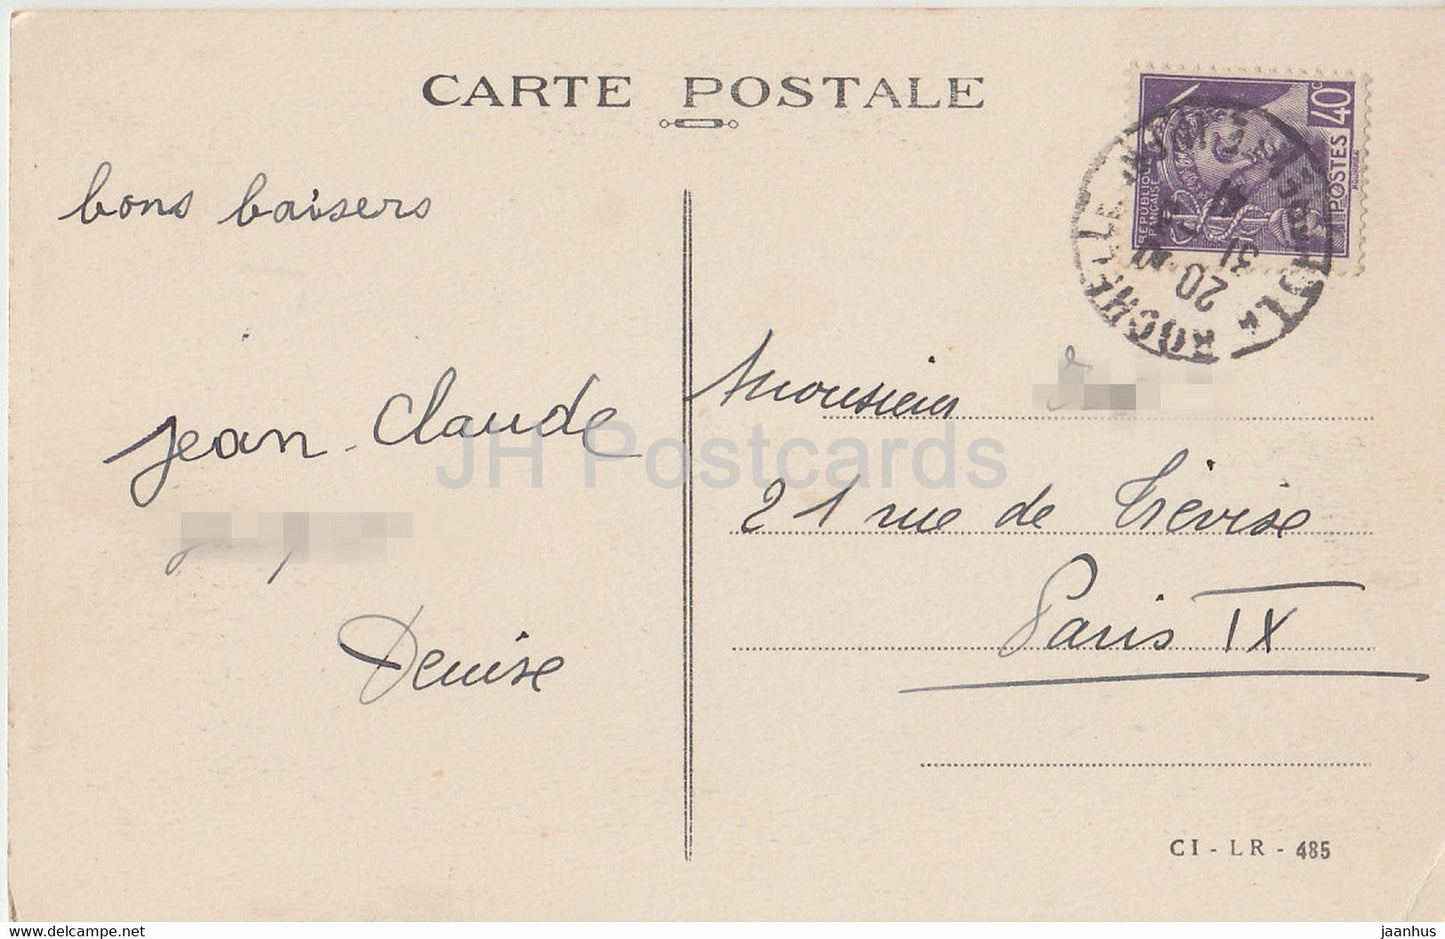 CARTE POSTALE
bons baisers
jean-Claude
Denise
Monsieur
21 rue de Trévise
Paris IX
CI-LR-485
REPUBLIQUE FRANÇAISE
POSTES
40c
ROCHELLE
20
31
JH Postcards
www.delcampe.net
jaanhus